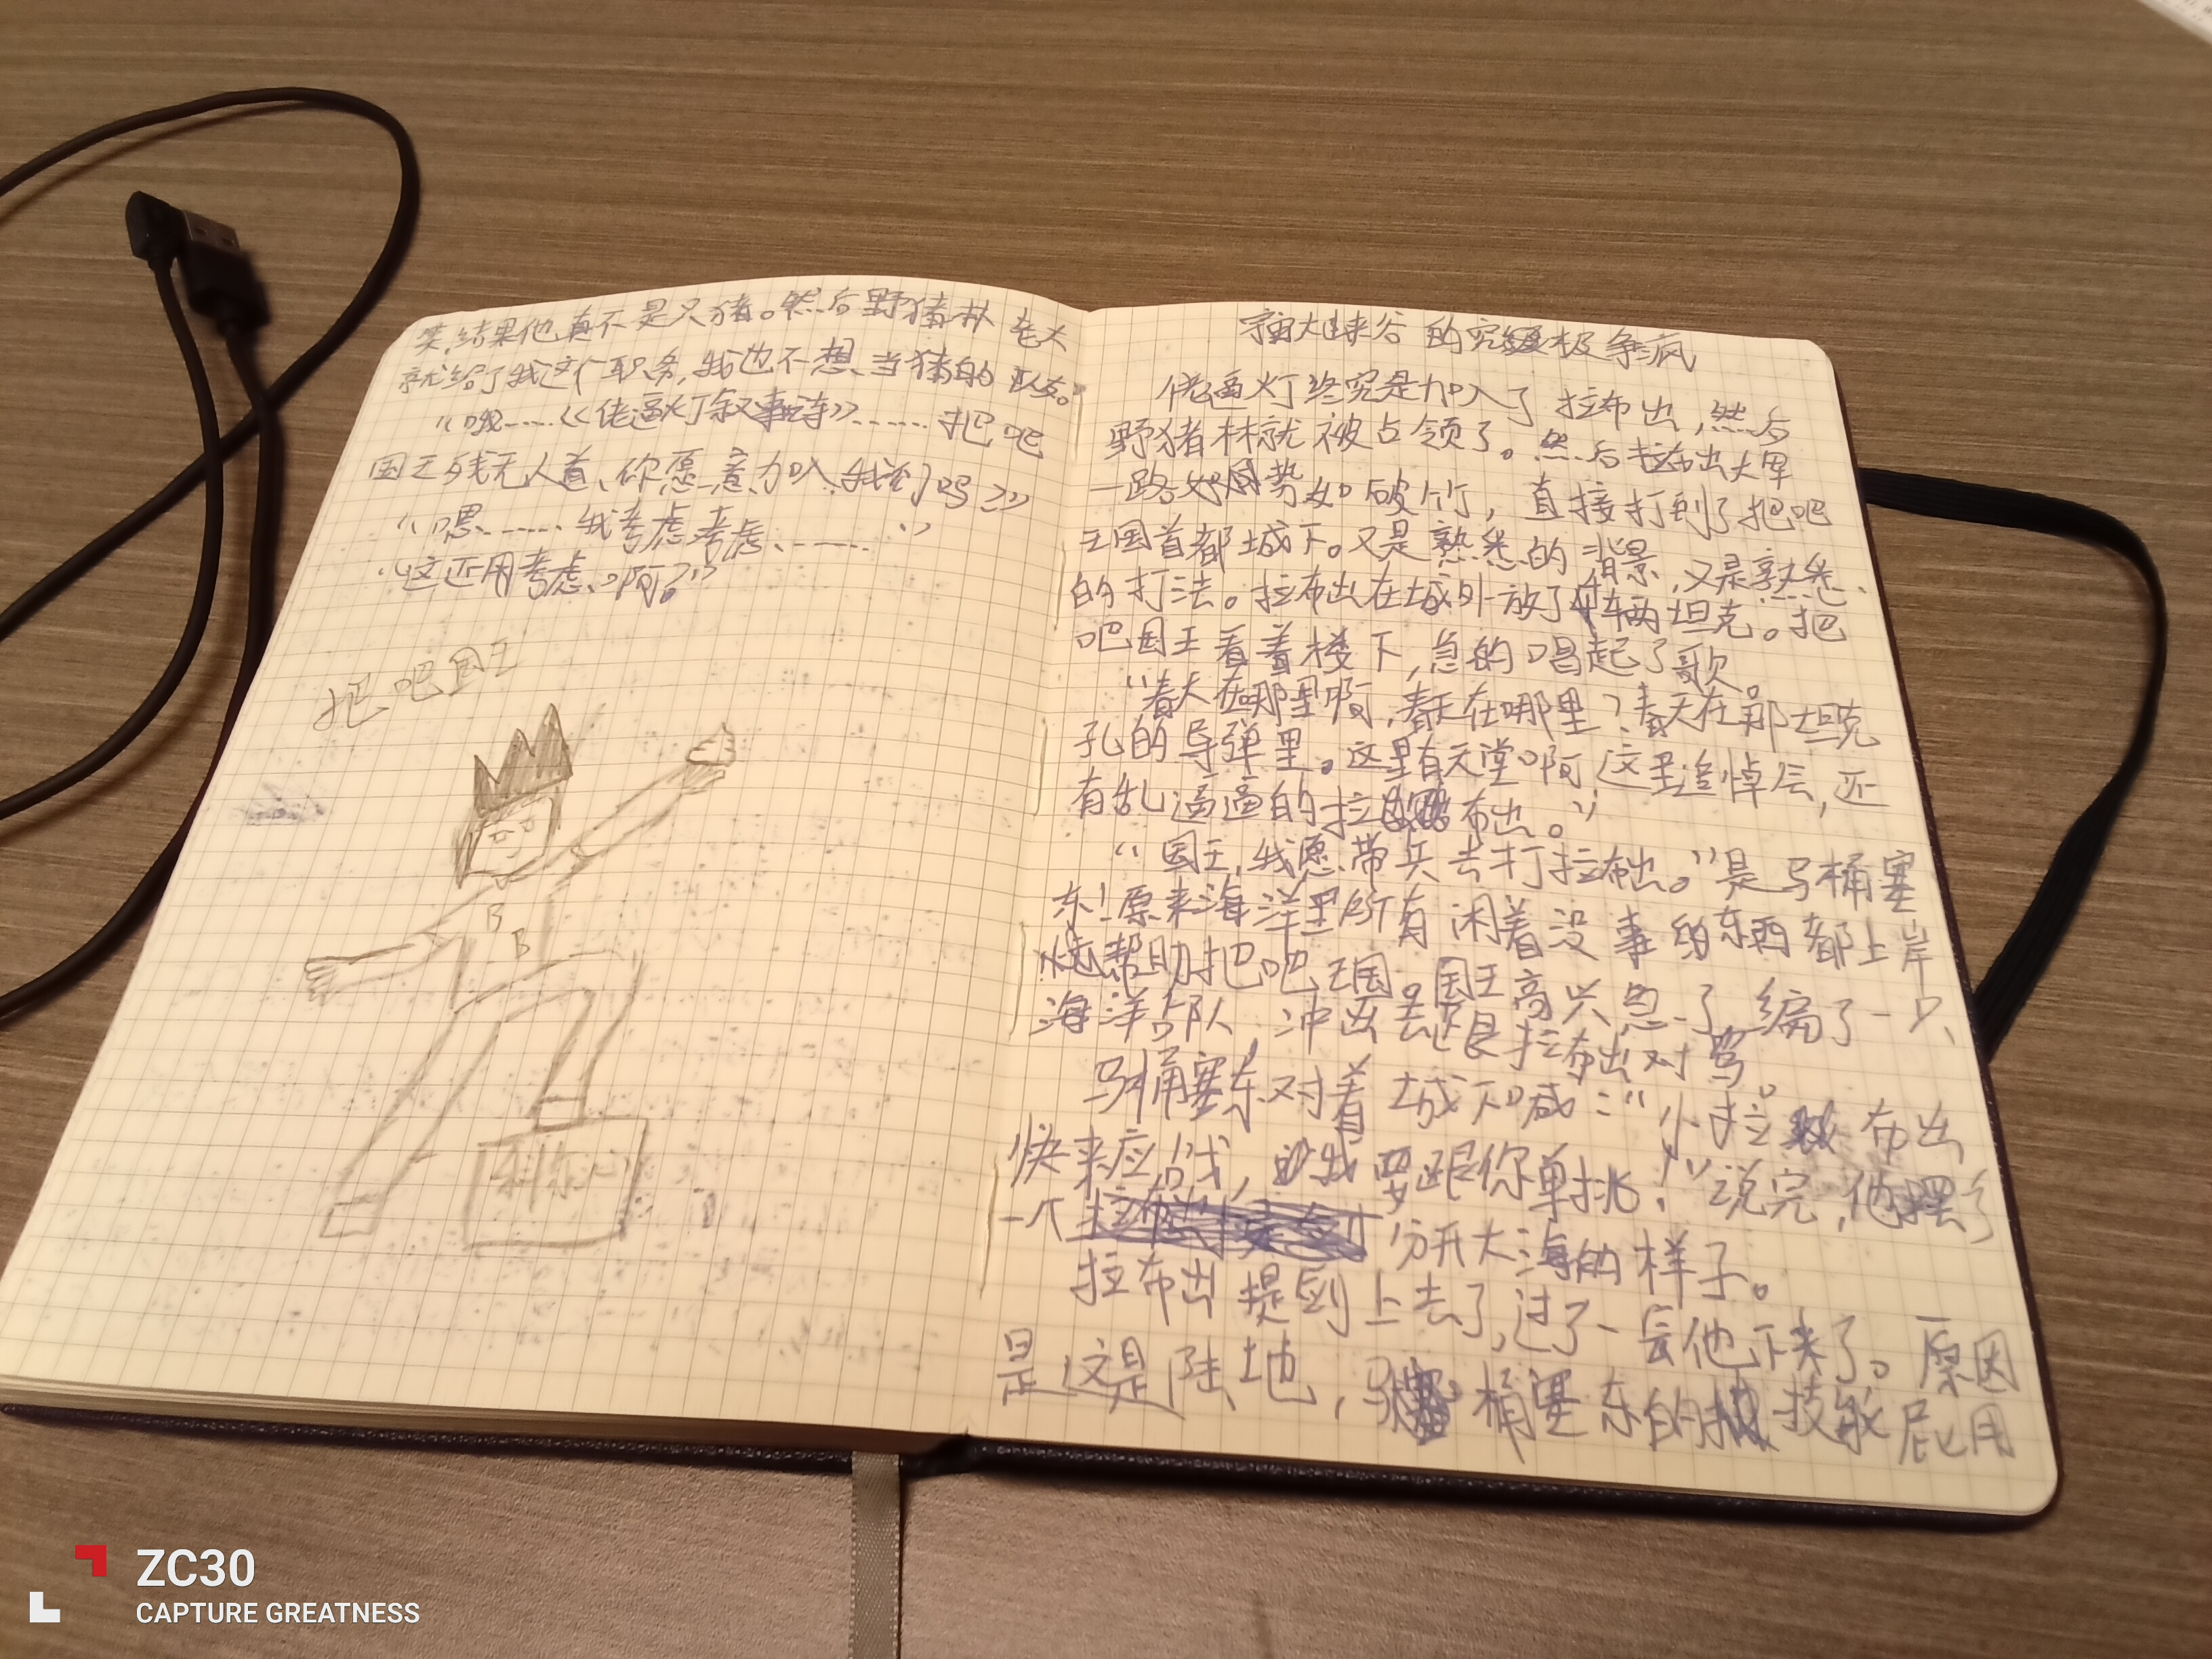 笑,结果他真不是只猪。然后野猪林老大
就给了我这个职务,我也不想当猪的队友。
“哦……《佬逼灯叙事诗》……把吧
国王残无人道、你愿意加入我们吗?”
“嗯……我考虑考虑……”
“这还用考虑、啊?”
把吧国王
B
B
大峡谷的究极争疯
佬逼灯终究是加入了拉布出,然后
野猪林就被占领了。然后拉布出大军
一路势如破竹,直接打到了把吧
王国首都城下。又是熟悉的背景,又是熟悉
的打法。拉布出在城外放了辆坦克。把
吧国王看着楼下,急的唱起了歌。
“春天在哪里啊,春天在哪里?春天在那坦克
孔的导弹里。这里有天堂啊这里追悼会,还
有乱逼逼的拉布出。”
“国王,我愿带兵去打拉布出。”是马桶塞
东!原来海洋里所有闲着没事的东西都上岸
帮助把吧王国。国王高兴急了,编了一只
海洋部队,冲出去跟拉布出对骂。
马桶塞东对着城下喊:“小拉布出
快来应战,我要跟你单挑!”说完,他摆了
一个分开大海的样子。
拉布出提剑上去了,过了一会他下来了。原因
是这是陆地,马桶塞东的技能屁用
ZC30
CAPTURE GREATNESS